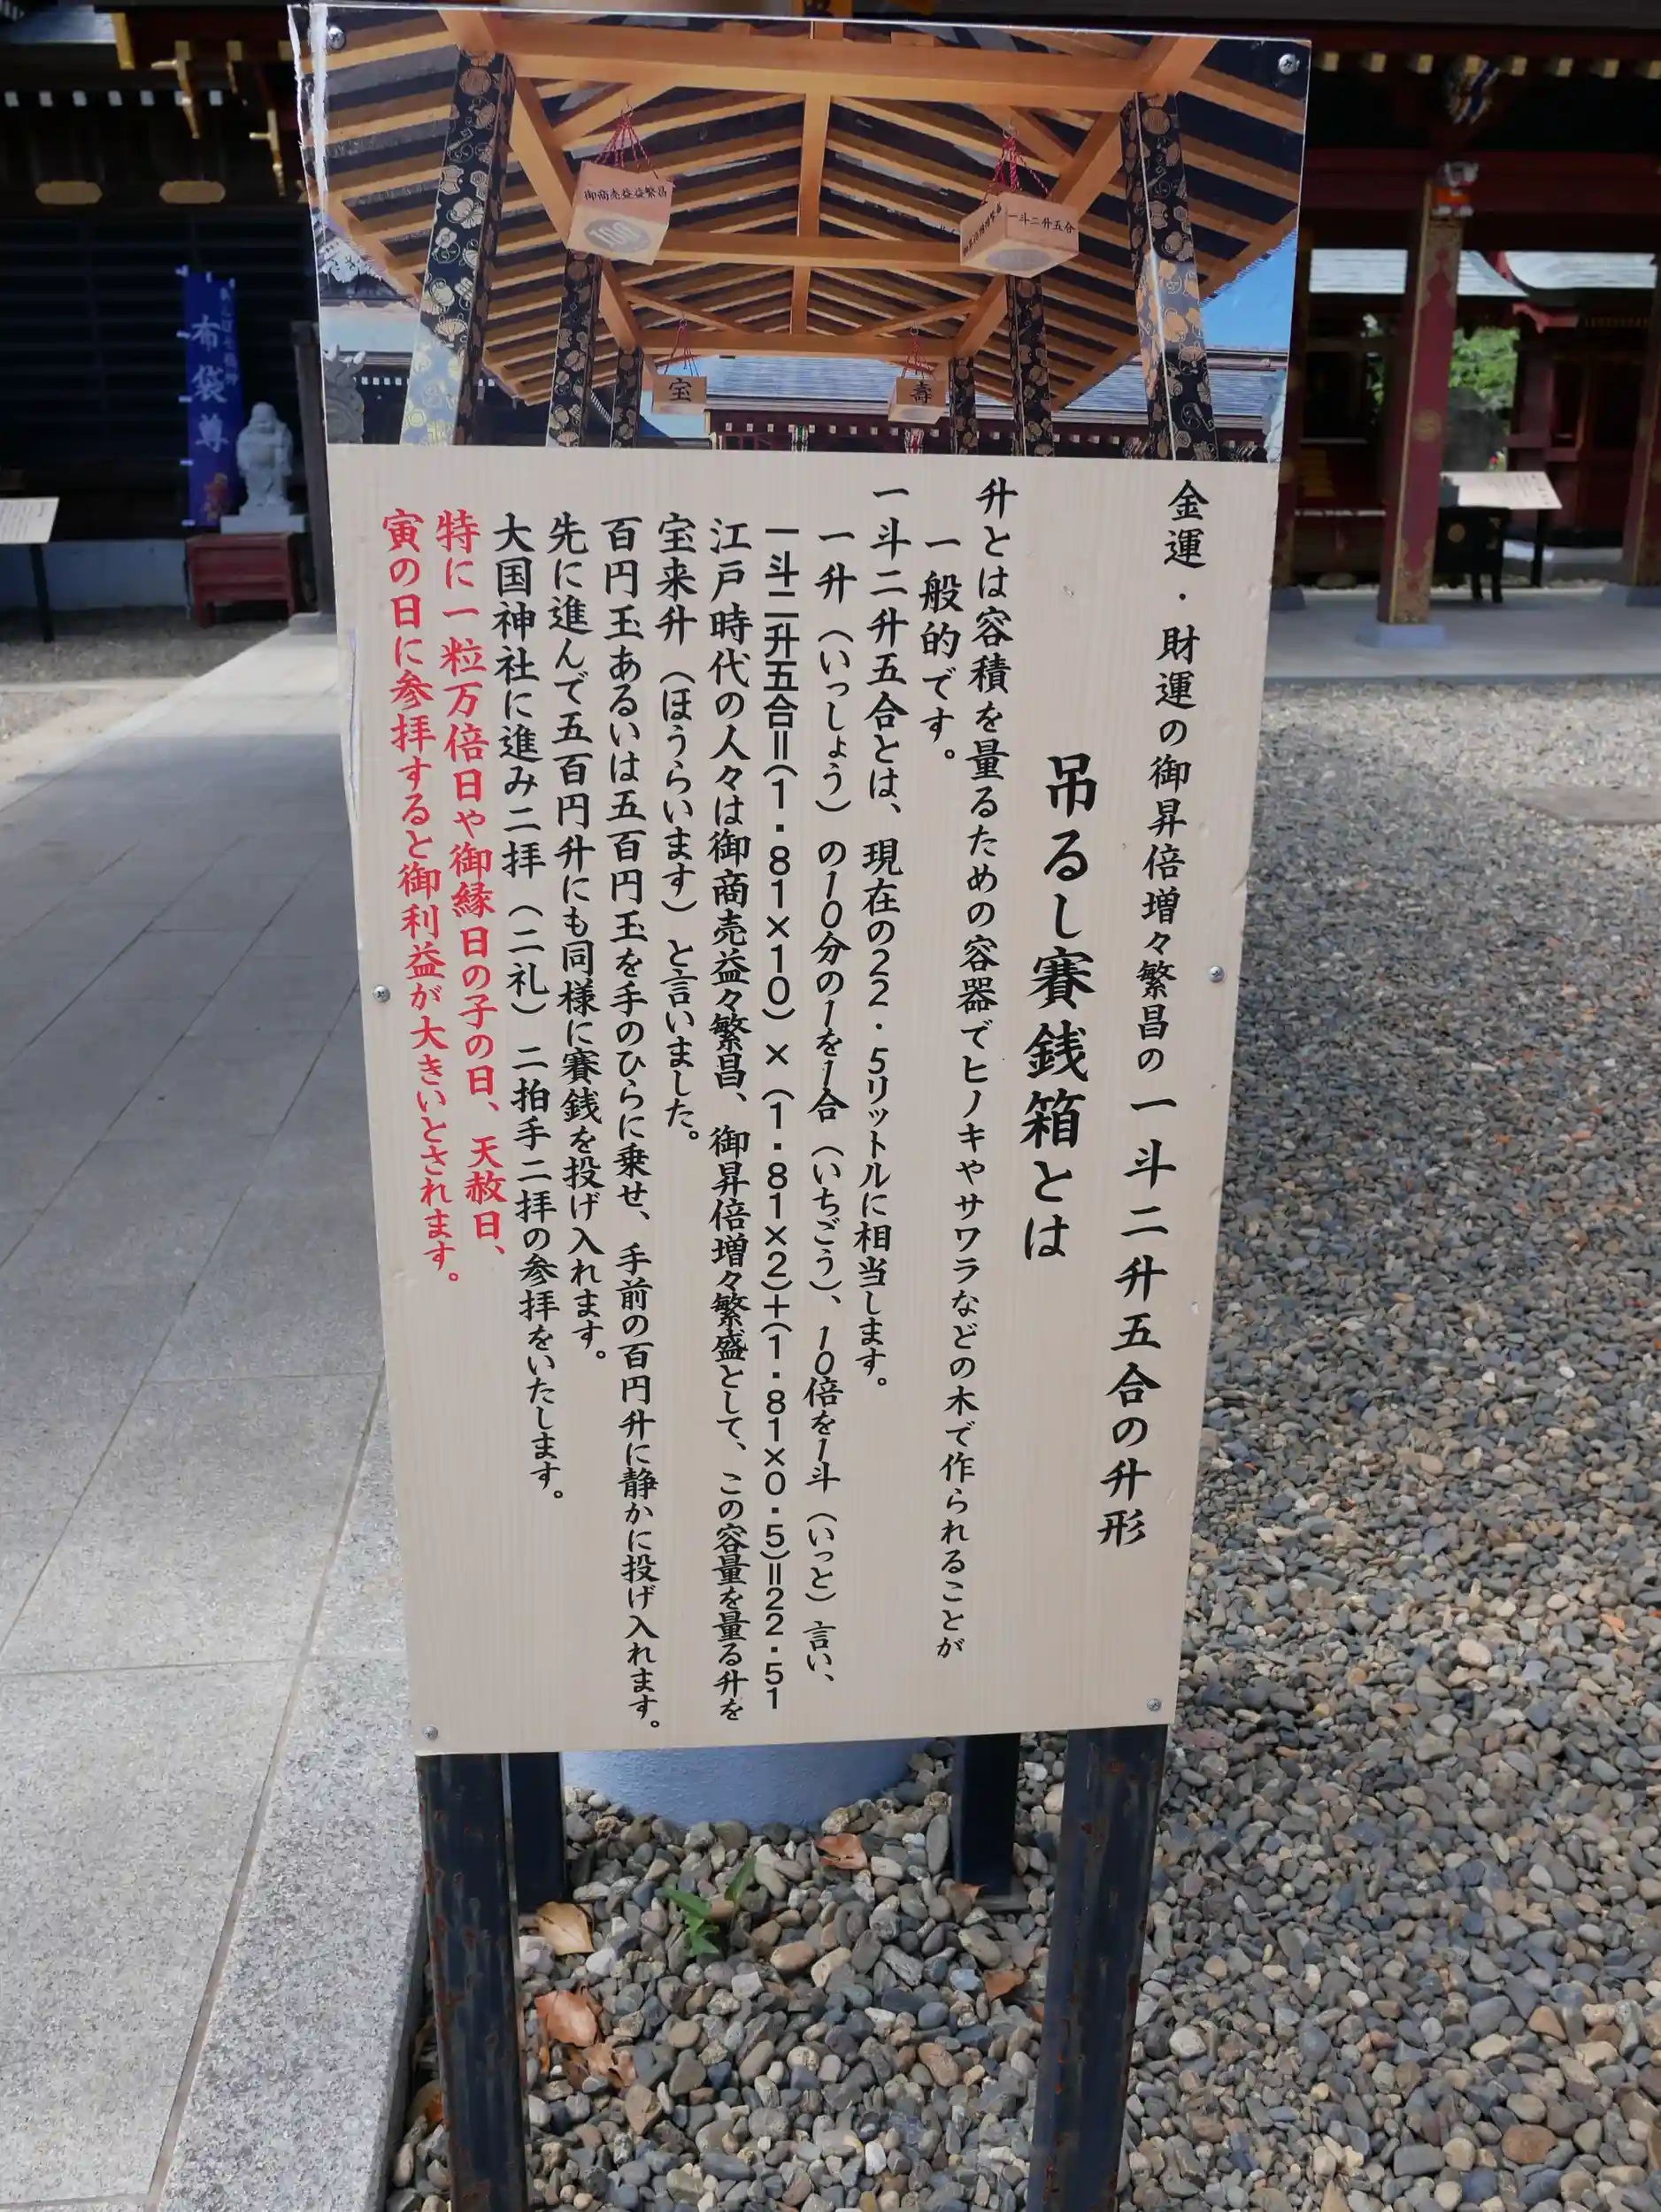 御商売益益繁昌
100
一斗二升五合
宝
壽
布袋尊
金運・財運の御昇倍増々繁昌の一斗二升五合の升形
吊るし賽銭箱とは
升とは容積を量るための容器でヒノキやサワラなどの木で作られることが
一般的です。
一斗二升五合とは、現在の22・5リットルに相当します。
一升（いっしょう）の10分の1を1合（いちごう）、10倍を1斗（いっと）言い、
一斗二升五合=(1・81×10)×(1・81×2)+(1・81×0・5)=22・51
江戸時代の人々は御商売益々繁昌、御昇倍増々繁盛として、この容量を量る升を
宝来升（ほうらいます）と言いました。
百円玉あるいは五百円玉を手のひらに乗せ、手前の百円升に静かに投げ入れます。
先に進んで五百円升にも同様に賽銭を投げ入れます。
大国神社に進み二拝（二礼）二拍手二拝の参拝をいたします。
特に一粒万倍日や御縁日の子の日、天赦日、
寅の日に参拝すると御利益が大きいとされます。